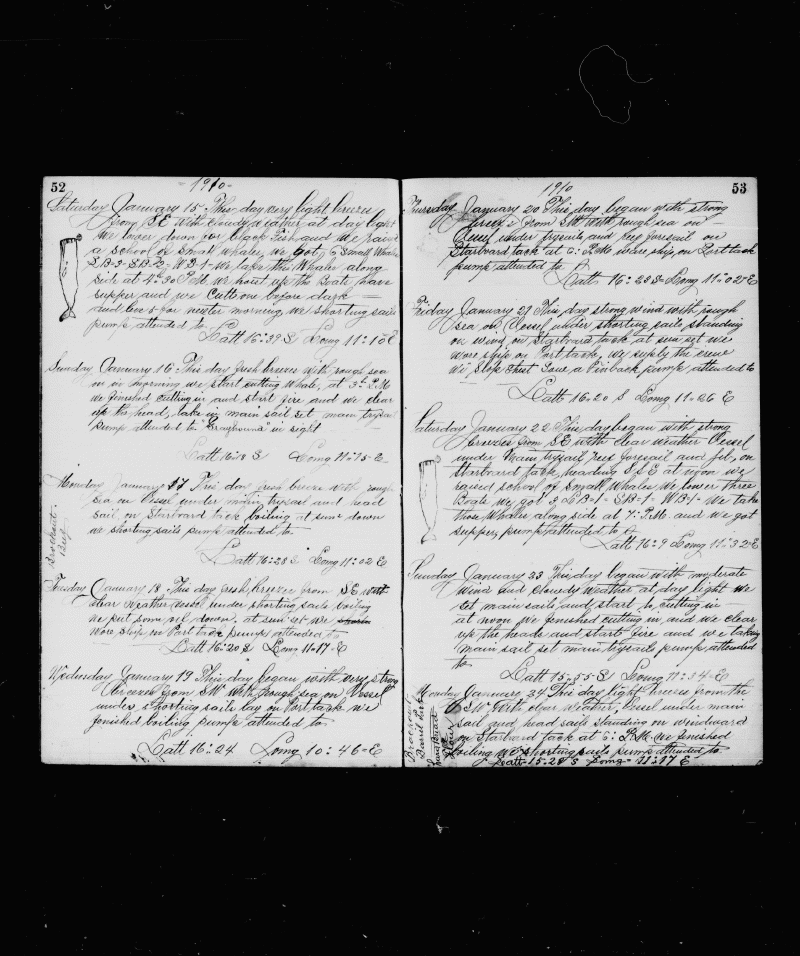 52
-1910-
Saturday January 15 This day very light breeze
from SE with Cloudy weather at day light
We lower down for black Fish and We raise
a school of Small whales, we got 6 Small Whales
LB-3- SB-2- WB-1- We take this Whales along
side at 4=30 P.M. We hoist up the Boats have
supper and we Cutt one before dark
and leve 5 for nexter morning we shorting sails
pump attended to
Latt 16:39 S Long 11:10 E
Sunday January 16 This day fresh breeze with rough sea
on in morning we start cutting Whale, at 3= P.M.
We finished cutting in and start fire and we clear
up the head, take in main sail set main trysail
Pump attended to "Greyhound" in sight
Latt 16:19 S Long 11:15 E
Monday January 17 This day fresh breeze with rough
sea on Vessel under main trysail and head
sail on Starboard tack boiling at sun down
we shorting sails pump attended to
Brockout.
Beef
Latt 16:28 S Long 11:02 E
Tuesday January 18 This day fresh breeze from SE with
clear weather vessel under shorting sails boiling
we put some oil down, at sun set we
wore ship on Port tack pump attended to
Latt 16:20 S Long 11-17-E
Wednesday January 19 This day began with very strong
breezes from SW With rough sea on Vessel
under shorting sails lay on Port tack we
finished boiling pump attended to
Latt 16:24 Long 10:46-E
53
1910
Thursday January 20 This day began with strong
breezes from SW with rough sea on
Vessel under trysails and reef foresail on
Starboard tack at 6: P.M. wore ship on Port tack
pump attended to
Latt 16:28 S Long 11:02 E
Friday January 21 This day strong wind with rough
sea on Vessel under shorting sails standing
on wind on Starboard tack at sun set we
wore ship on Port tack, we suply the crew
We Slop Chest Saw a Finback pump attended to
Latt 16-20 S Long 11-26 E
Saturday January 22 This day began with strong
breezes from SE with clear weather Vessel
under Main trysail, reef foresail and jib, on
Starboard tack heading SSE at noon we
raised school of Small Whales We lower three
Boats We got 3 LB-1- SB-1- WB-1- We take
those Whales along side at 7: P.M. and we got
supper, pump attended to
Latt 16:9 Long 11:32 E
Sunday January 23 This day began with moderate
wind and Cloudy weather at day light we
set main sails and start to cutting in
at noon We finished cutting in and we clear
up the heads and start fire and we taking
main sail set main trysails pump attended
to
Latt 15-55 S Long 11:34 E
Monday January 24 This day light breeze from the
SW. With clear weather, Vessel under main
sail and head sails standing on windward
on Starbord tack at 6: P.M. we finished
boiling We shorting sails pump attended to
Latt 15:28 S Long 11:17 E
Brockout
Barrel Pork
hard Bread
Flour